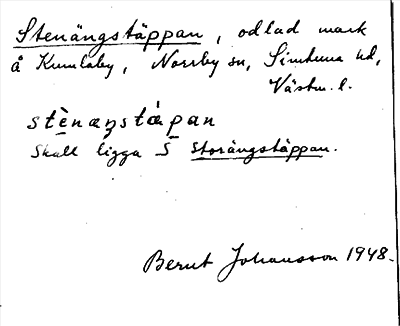 Stenängstäppan, odlad mark
å Kumlaby, Norrby sn, Simtuna hd,
Västm. l.
stènæŋstápan
Skall ligga S Storängstäppan.
Bernt Johansson 1948.